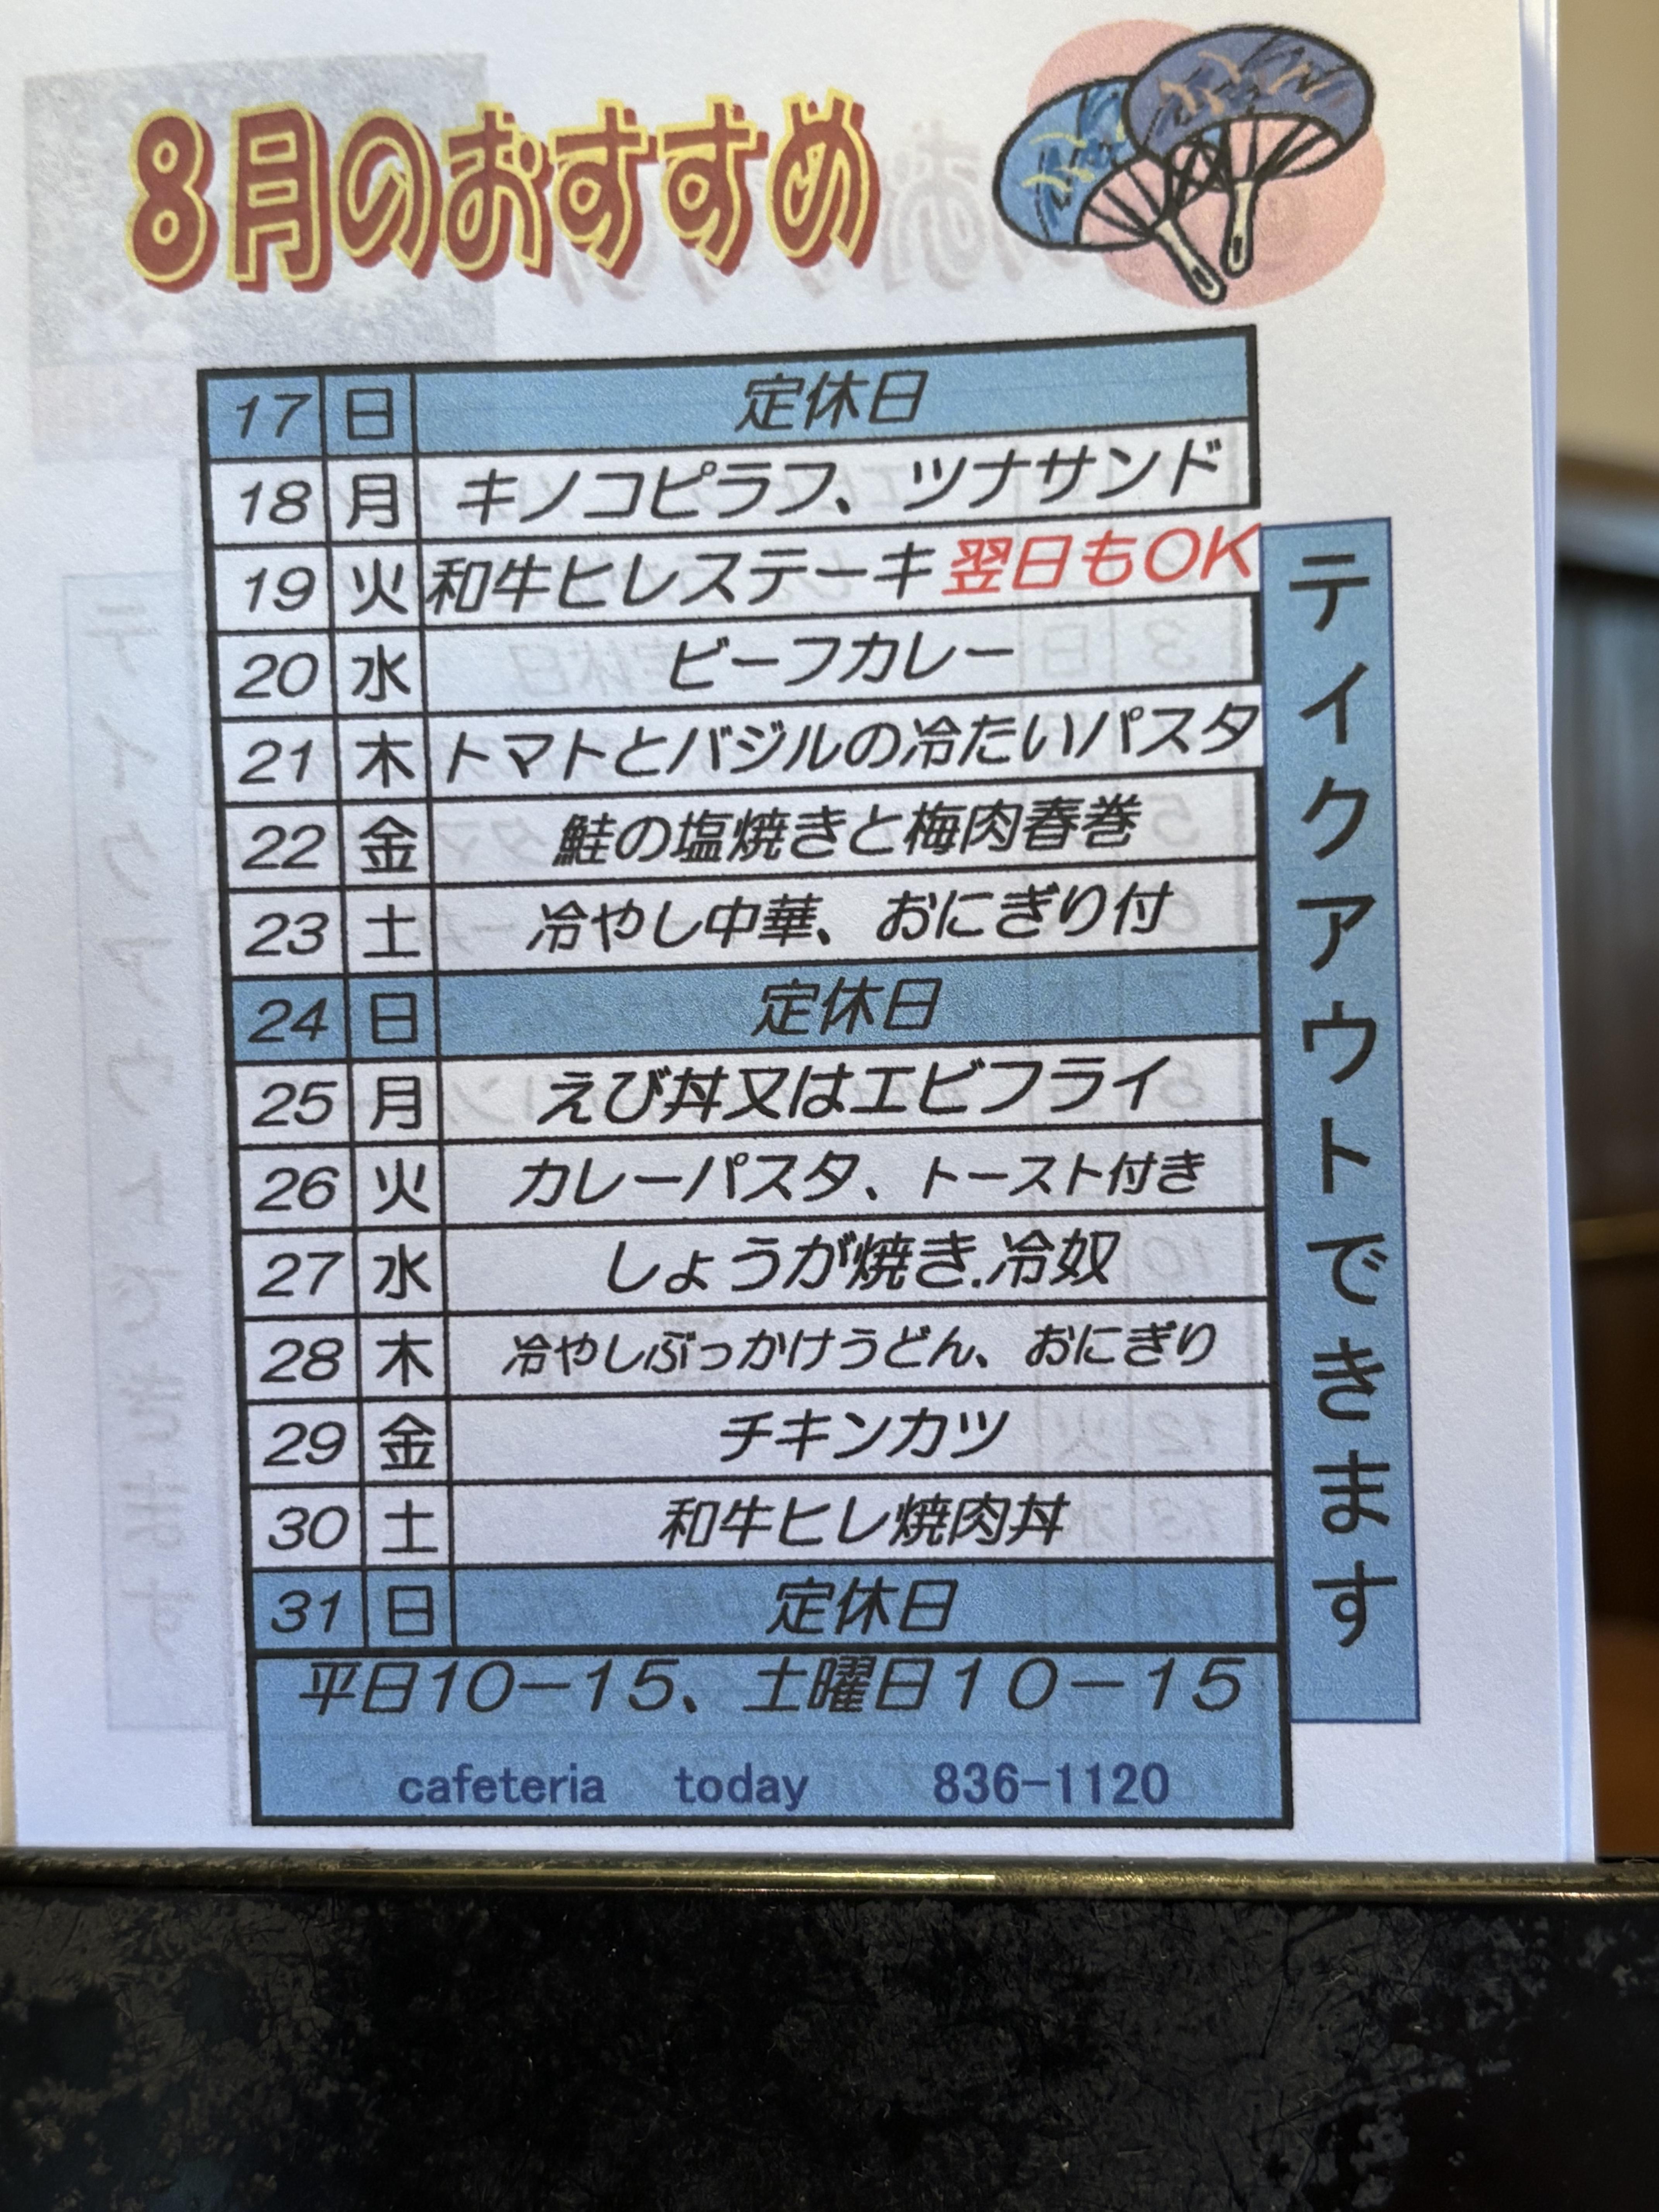 8月のおすすめ
17 日 定休日
18 月 キノコピラフ、ツナサンド
19 火 和牛ヒレステーキ 翌日もOK
20 水 ビーフカレー
21 木 トマトとバジルの冷たいパスタ
22 金 鮭の塩焼きと梅肉春巻
23 土 冷やし中華、おにぎり付
24 日 定休日
25 月 えび丼又はエビフライ
26 火 カレーパスタ、トースト付き
27 水 しょうが焼き.冷奴
28 木 冷やしぶっかけうどん、おにぎり
29 金 チキンカツ
30 土 和牛ヒレ焼肉丼
31 日 定休日
平日10－15、土曜日１０－１５
cafeteria today 836-1120
テイクアウトできます